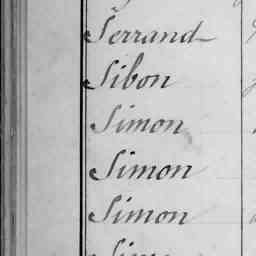 Serrand
Sibon
Simon
Simon
Simon